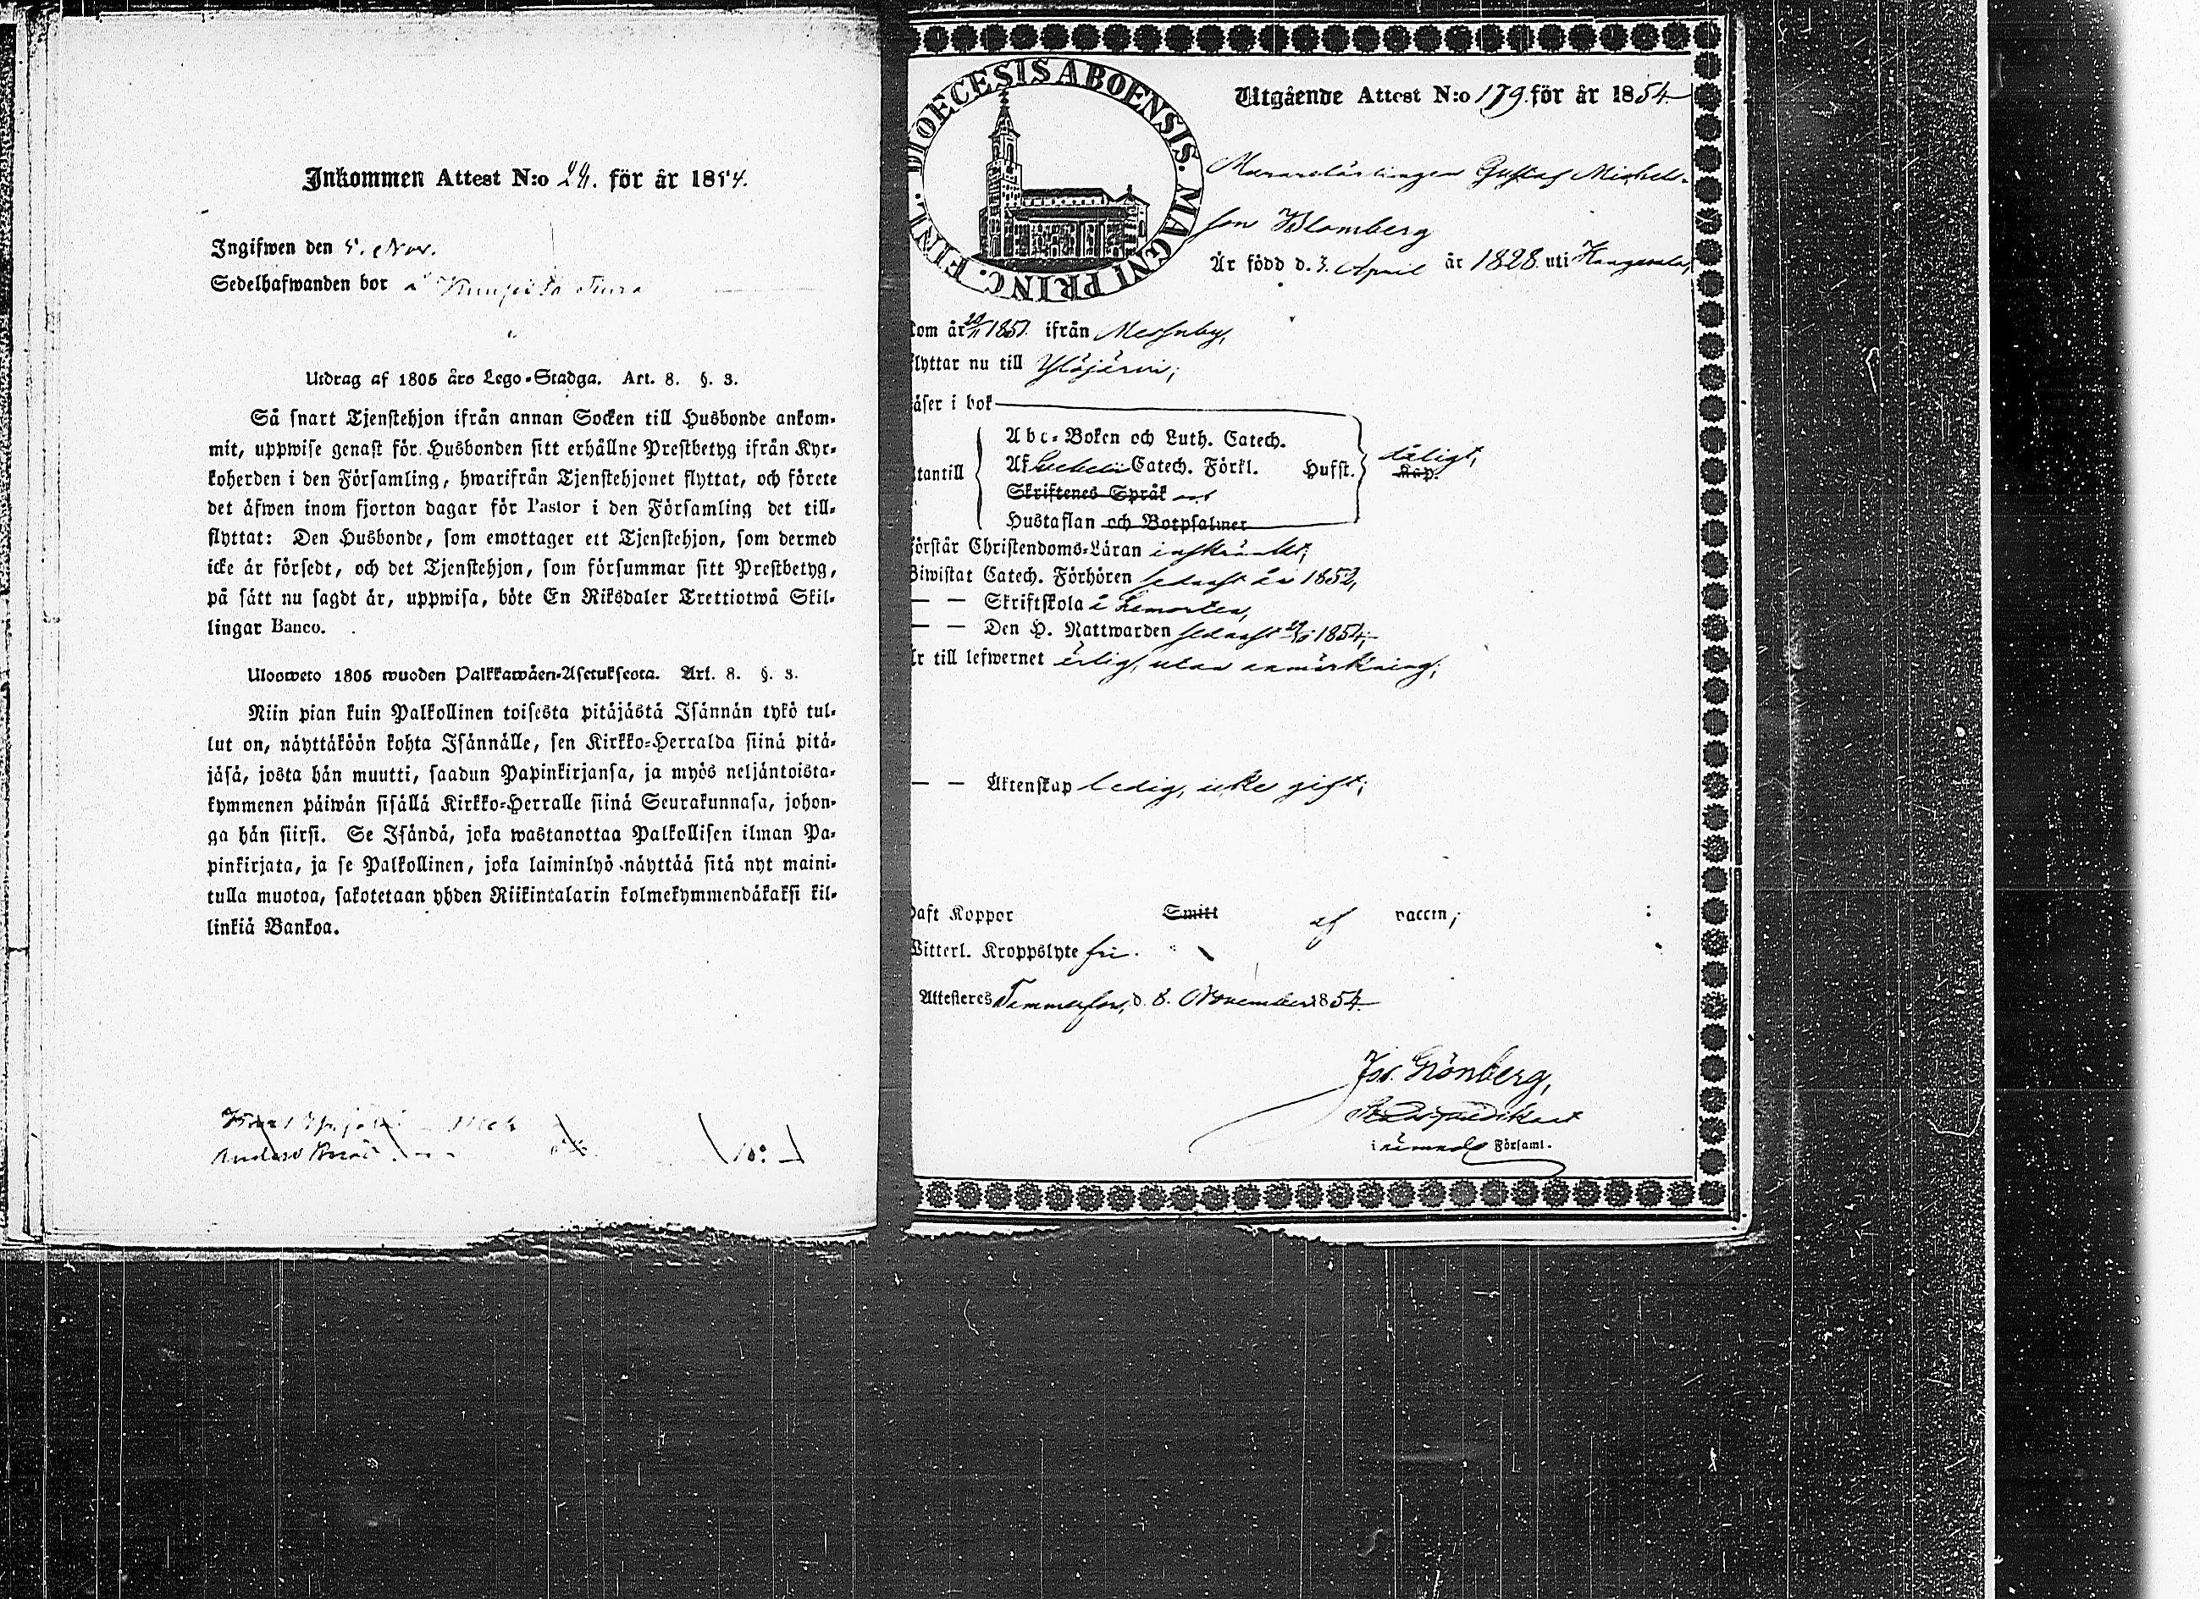 Inkommen Attest N:o 24. för år 1854.
Ingifwen den 5. Nov.
Sedelhafwanden bor å
Utdrag af 1805 års Lego-Stadga. Art. 8. §. 3.
Så snart Tjenstehjon ifrån annan Socken till Husbonde ankom-
mit, uppwise genast för Husbonden sitt erhållne Prestbetyg ifrån Kyr-
koherden i den Församling, hwarifrån Tjenstehjonet flyttat, och förete
det äfwen inom fjorton dagar för Pastor i den Församling det till-
flyttat: Den Husbonde, som emottager ett Tjenstehjon, som dermed
icke är försedt, och det Tjenstehjon, som försummar sitt Prestbetyg,
på sätt nu sagdt är, uppwisa, böte En Riksdaler Trettiotwå Skil-
lingar Banco.
Uloosweto 1805 wuoden Palkkawäen-Asetuksesta. Art. 8. §. 3.
Niin pian kuin Palkollinen toisesta pitäjästä Isännän tykö tul-
lut on, näyttäköön kohta Isännälle, sen Kirkko-Herralda siinä pitä-
jäsä, josta hän muutti, saadun Papinkirjansa, ja myös neljäntoista-
kymmenen päiwän sisällä Kirkko-Herralle siinä Seurakunnasa, johon-
ga hän siirsi. Se Isändä, joka wastanottaa Palkollisen ilman Pa-
pinkirjata, ja se Palkollinen, joka laiminlyö näyttää sitä nyt maini-
tulla muotoa, sakotetaan yhden Riikintalarin kolmekymmendäkaksi kil-
linkiä Bankoa.
DIOECESIS ABOENSIS. MAGNI PRINC. FINL.
Utgående Attest N:o 179 för år 1854
Murarelärlingen Gustaf Michels-
son Blomberg
Är född d. 3. April år 1828 uti Kangasala,
kom år 1851 ifrån Messuby,
flyttar nu till Ylöjärvi;
läser i bok
utantill
Abc-Boken och Luth. Catech.
Af Catech. Förkl. Husst.
Skriftenes Språk
Hustaflan och Botpsalmer
dåligt,
Kap.
förstår Christendoms-Läran inskränkt;
Biwistat Catech. Förhören sednast år 1852,
— — Skriftskola å
— — Den H. Nattwarden sednast 1854;
Är till lefwernet ärlig, utan anmärkning;
— — Äktenskap ledig, icke gift;
Haft Koppor Smitt af vaccin;
Witterl. Kroppslyte fri.
Attesteres Tammerfors, d. 8. November 1854
Jos. Grönberg,
Stadspredikant
i nämnde Församl.